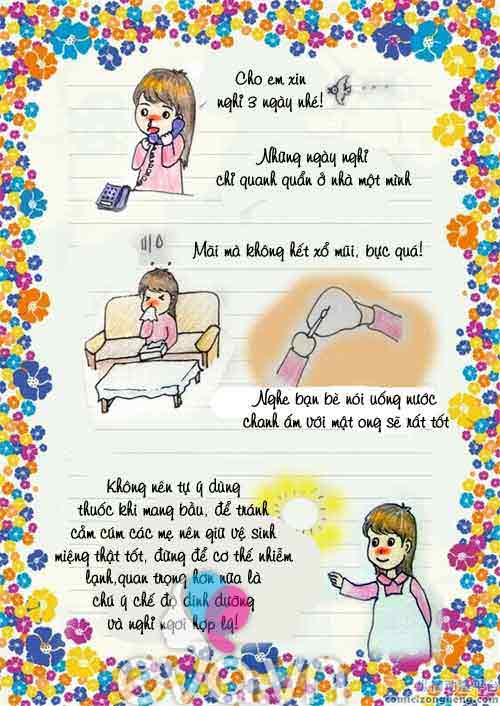 Cho em xin
nghỉ 3 ngày nhé!
Những ngày nghỉ
chỉ quanh quẩn ở nhà một mình
Mãi mà không hết xổ mũi, bực quá!
Nghe bạn bè nói uống nước
chanh ấm với mật ong sẽ rất tốt
Không nên tự ý dùng
thuốc khi mang bầu, để tránh
cảm cúm các mẹ nên giữ vệ sinh
miệng thật tốt, đừng để cơ thể nhiễm
lạnh,quan trọng hơn nữa là
chú ý chế độ dinh dưỡng
và nghỉ ngơi hợp lý!
eva.vn
comic.zongheng.com